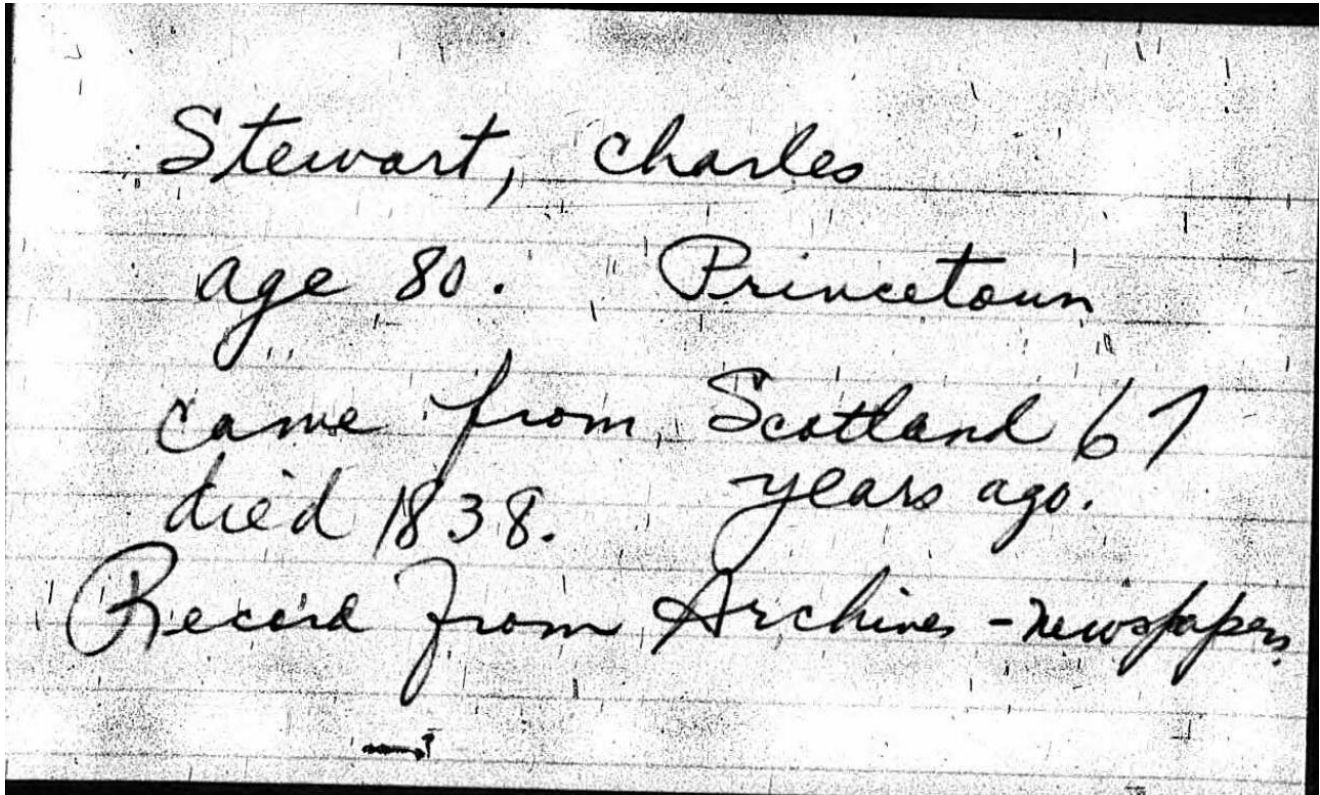 Stewart, Charles
age 80. Princetown
came from Scotland 67
died 1838. years ago.
Record from Archives - newspapers